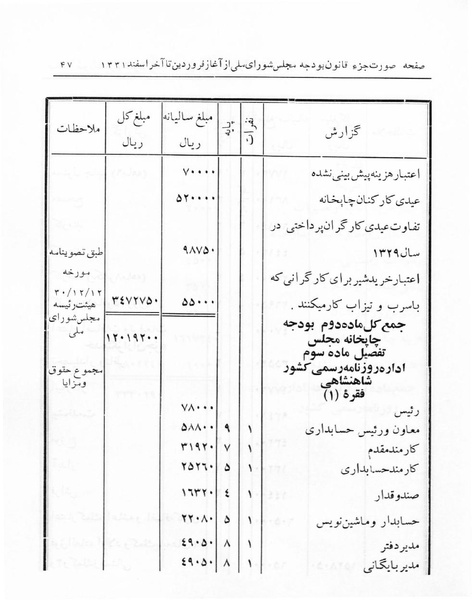 صفحه صورت جزء قانون بودجه مجلس شورای ملی از آغاز فروردین تا آخر اسفند ۱۳۳۱ ۴۷
گزارش نفرات پایه مبلغ سالیانه ریال مبلغ کل ریال ملاحظات
اعتبار هزینه پیش بینی نشده ۷۰۰۰۰
عیدی کارکنان چاپخانه ۵۲۰۰۰۰
تفاوت عیدی کارگران پرداختی در
سال ۱۳۲۹ ۹۸۷۵۰ طبق تصویبنامه
اعتبار خرید شیر برای کارگرانی که مورخه
با سرب و تیزاب کار میکنند . ۵۵۰۰۰ ۳۴۷۲۷۵۰ ۳۰/۱۲/۱۲
هیئت رئیسه
جمع کل ماده دوم بودجه مجلس شورای
چاپخانه مجلس ۱۲۰۱۹۲۰۰ ملی
تفصیل ماده سوم
اداره روزنامه رسمی کشور مجموع حقوق
شاهنشاهی ومزایا
فقرة (۱)
رئیس ۷۸۰۰۰
معاون ورئیس حسابداری ۱ ۹ ۵۸۸۰۰
کارمند مقدم ۱ ۷ ۳۱۹۲۰
کارمند حسابداری ۱ ۵ ۲۵۲۶۰
صندوقدار ۱ ۴ ۱۶۳۲۰
حسابدار وماشین نویس ۱ ۵ ۲۲۰۸۰
مدیر دفتر ۱ ۸ ۴۹۰۵۰
مدیر بایگانی ۱ ۸ ۴۹۰۵۰